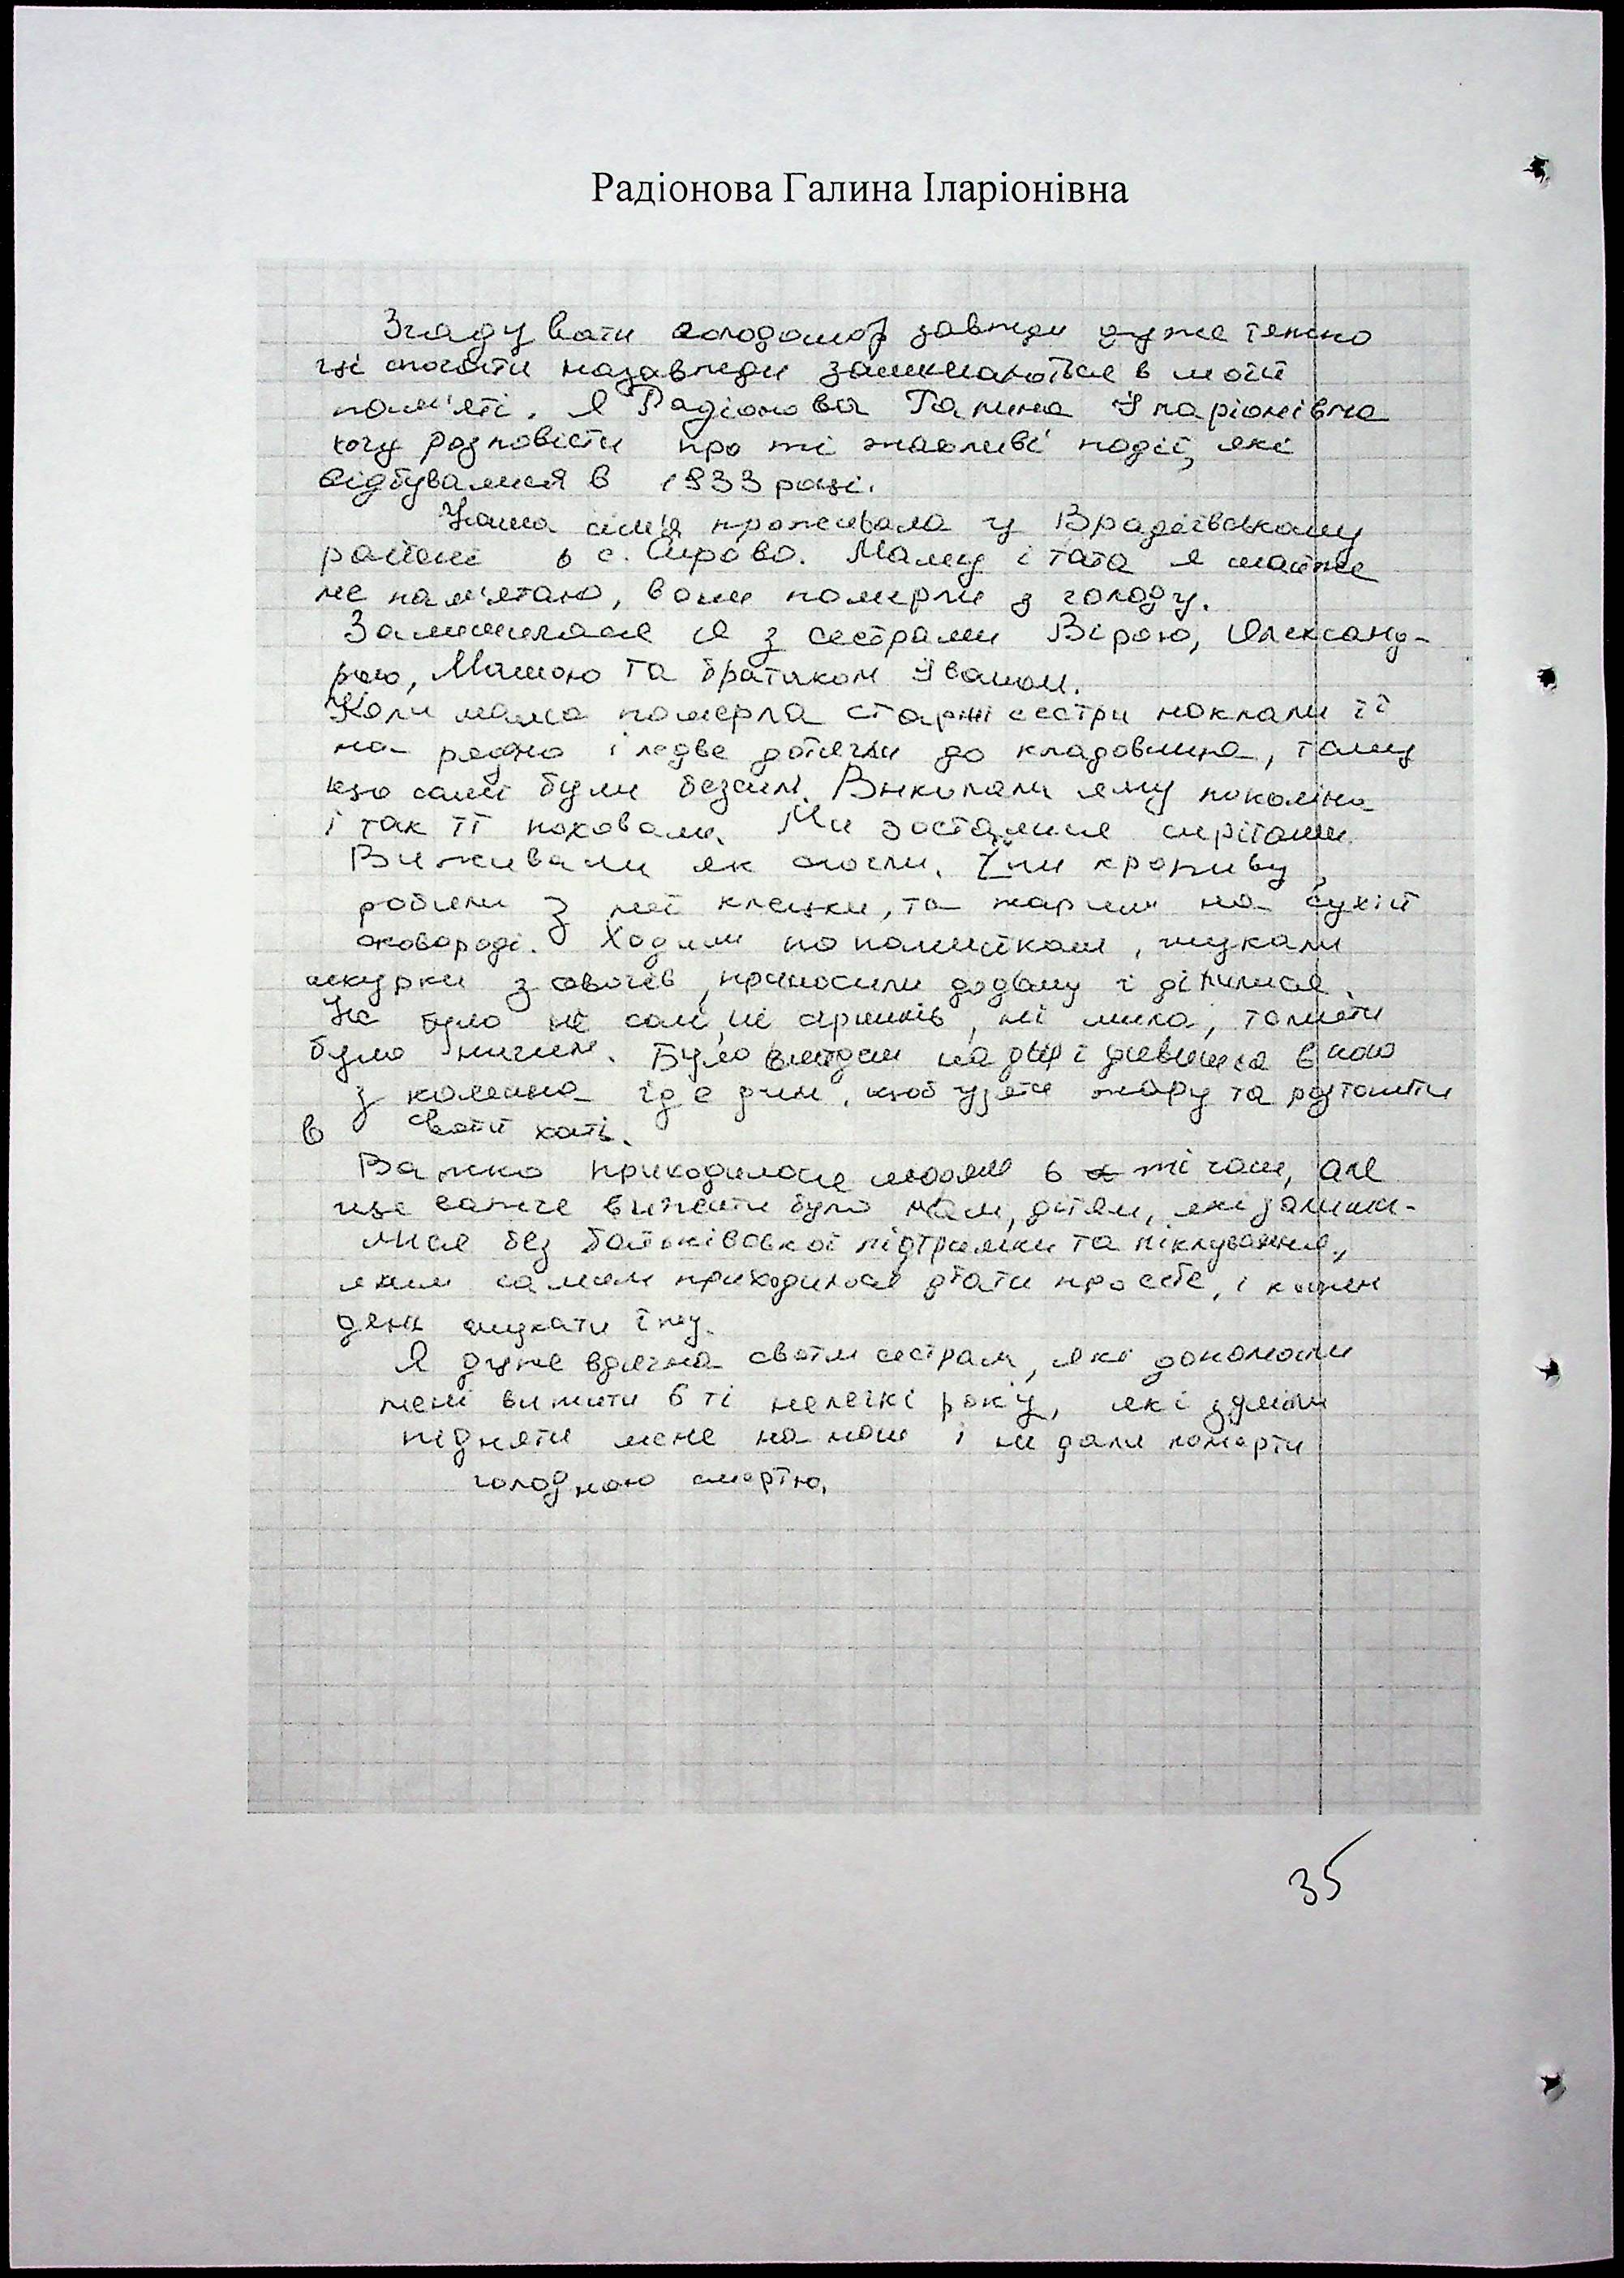 Радіонова Галина Іларіонівна
Згадувати голодомор завжди дуже тяжко
ці спогади назавжди залишаються в моїй
пам'яті. Я Радіонова Галина Іларіонівна
хочу розповісти про ті жахливі події, які
відбувалися в 1933 році.
Наша сім'я проживала у Врадіївському
районі в с. Сирово. Маму і тата я майже
не пам'ятаю, вони померли з голоду.
Залишилася я з сестрами Вірою, Олександ-
рою, Машою та братиком Іваном.
Коли мама померла старші сестри поклали її
на рядно і ледве дотягли до кладовища, тому
що самі були безсилі. Викопали яму поколіна
і так її поховали. Ми зосталися сиротами.
Виживали як могли. Їли кропиву,
робили з неї клецки, та жарили на сухій
сковороді. Ходили по помийкам, шукали
шкурки з овочів, приносили додому і ділилися.
Не було ні солі, ні сірників, ні мила, топити
було нічим. Було вийдем на двір і дивимся в кого
з комина іде дим, щоб узяти жару та розтопити
в своїй хаті.
Важко приходилося людям в ті часи, але
ще важче вижити було нам, дітям, які залиши-
лися без батьківської підтримки та піклування,
яким самим приходилося дбати про себе, і кожен
день шукати їжу.
Я дуже вдячна своїм сестрам, які допомогли
мені вижити в ті нелегкі роки, які зуміли
підняти мене на ноги і не дали померти
голодною смертю.
35